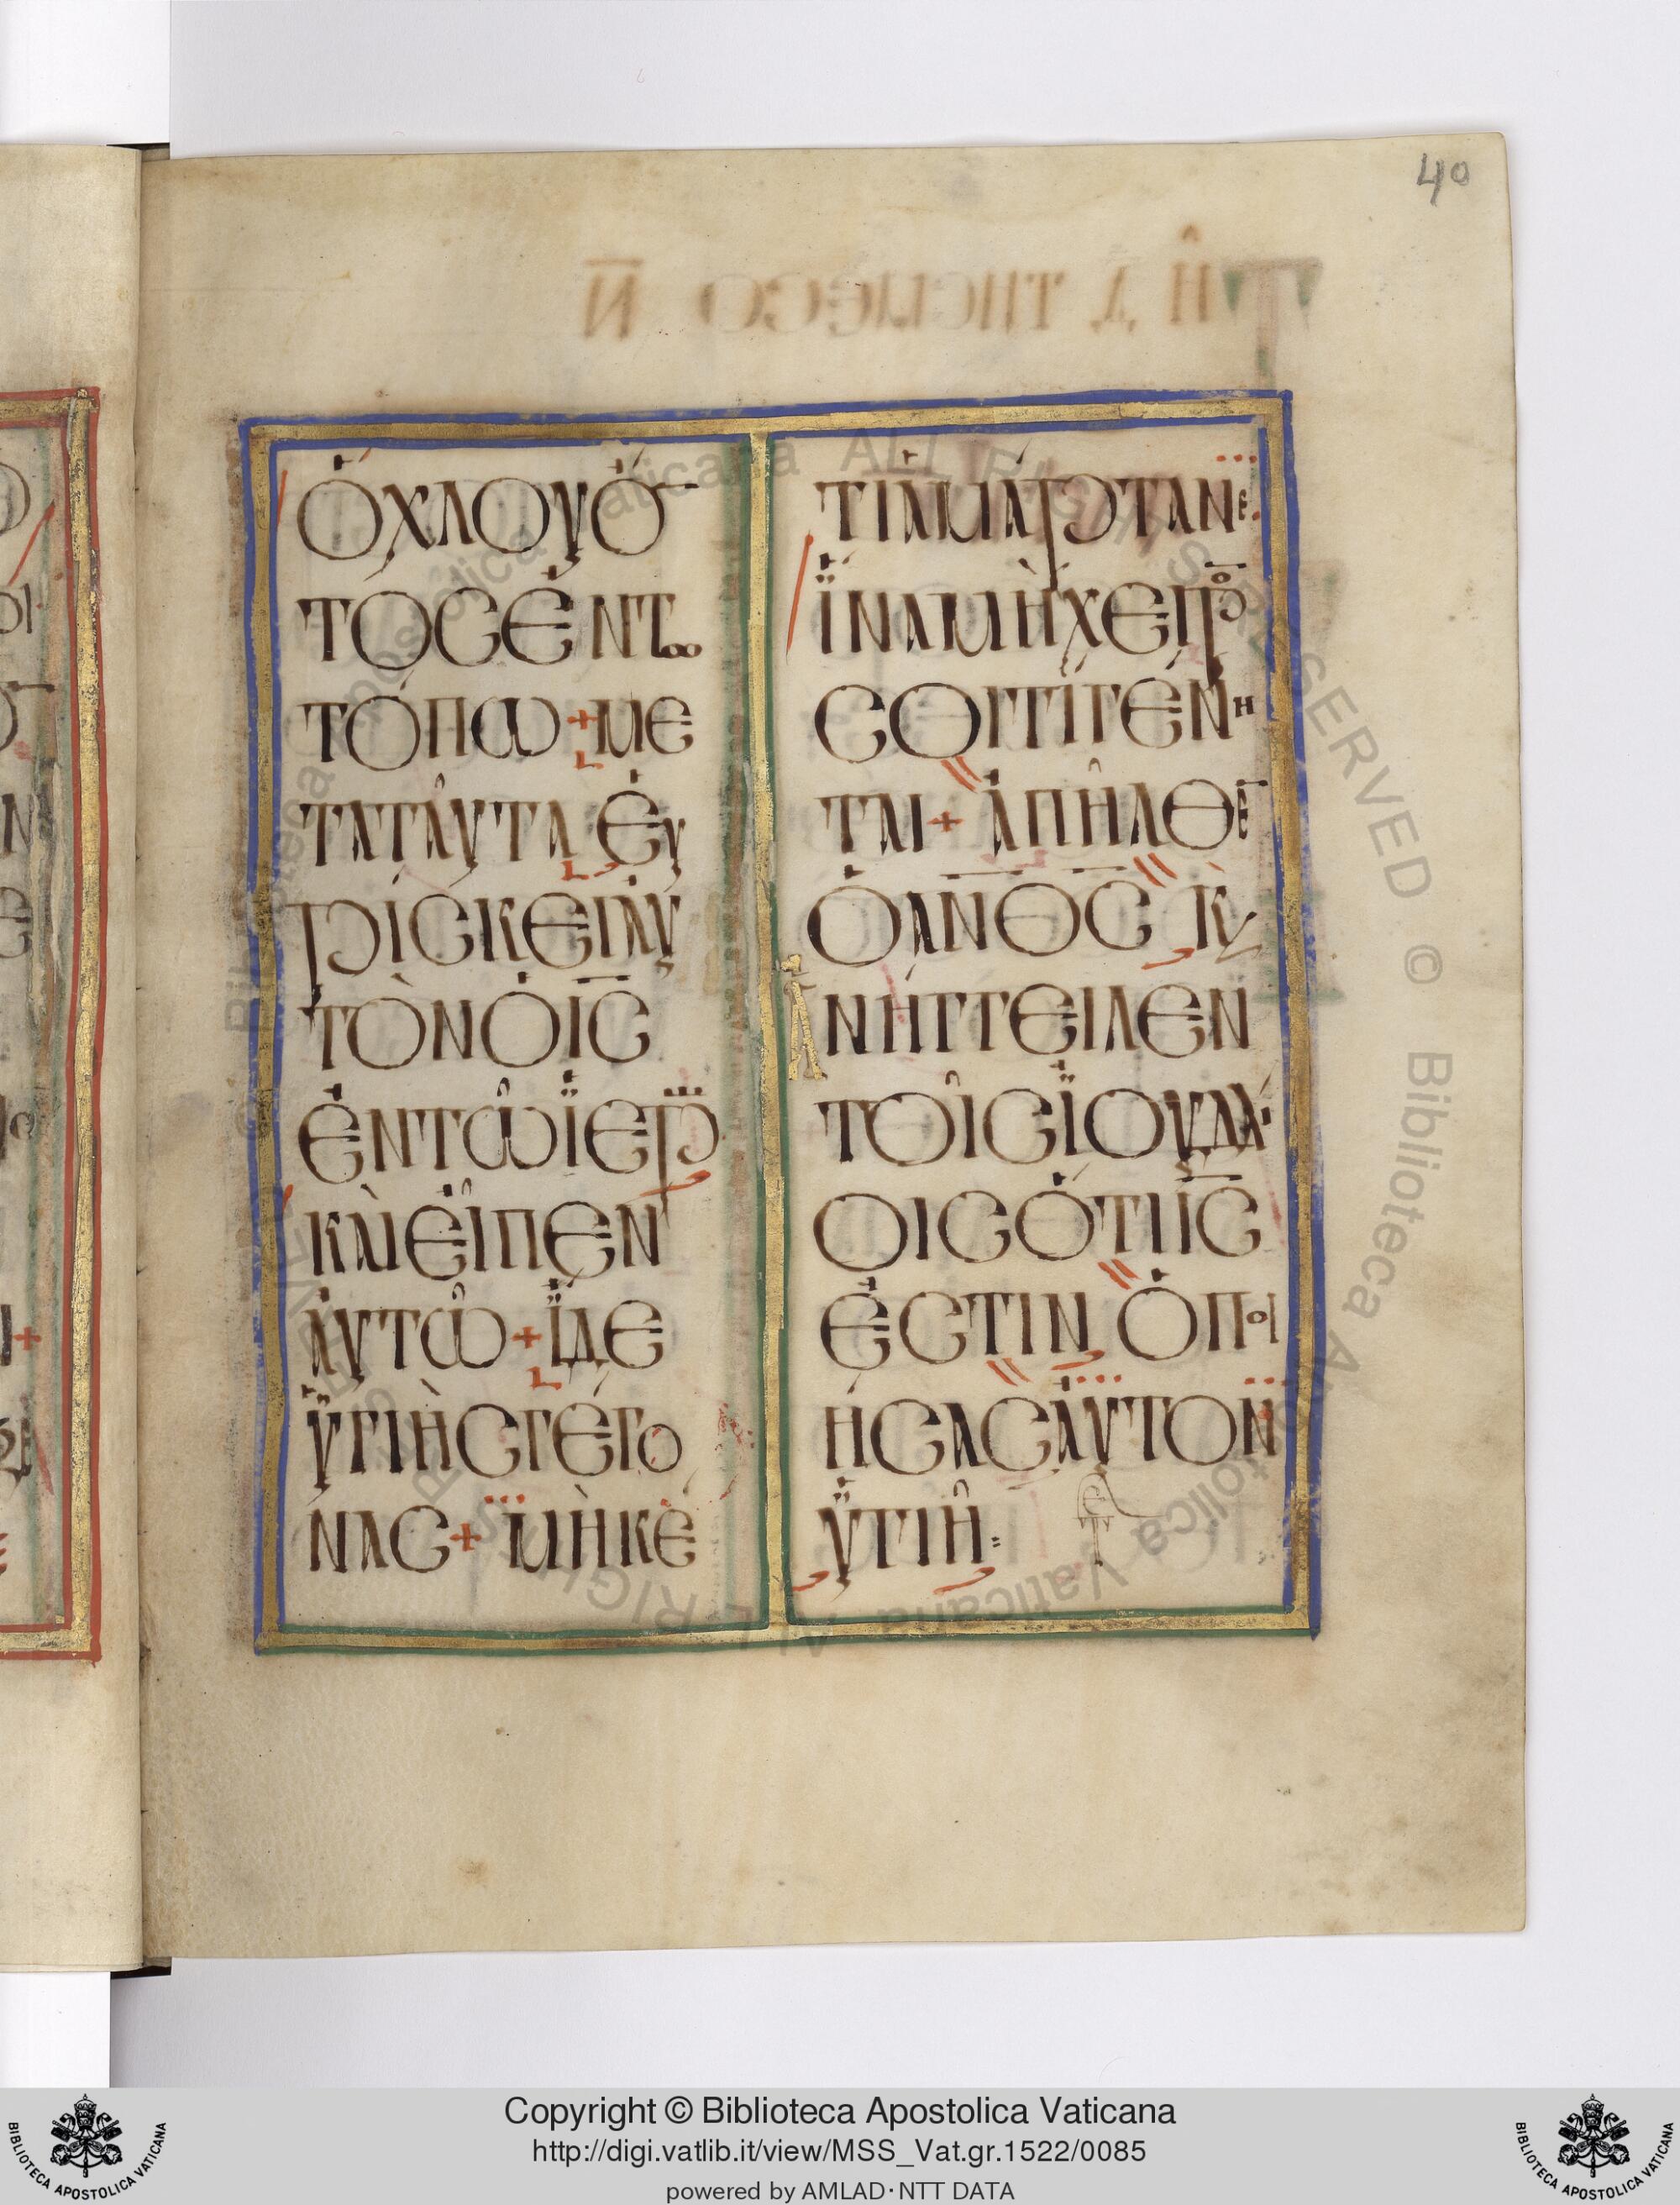 40
ὄχλου ὄ̅
τος ἐν τω
τόπω + με
τὰ ταῦτα εὑ
ρίσκει αὐ
τὸν ὁ ι̅ς̅
ἐν τῶ ϊερῶ
καὶ εἶπεν
αὐτῶ + ἴδε
ὑγιὴς γέγο
νας + μὴκὲ
τι ἁμάρτανε
ἵνα μὴ χεῖρο̅
σοι τί γένη
ται + ἀπῆλθε̅
ὁ α̅ν̅ο̅ς̅ κ̀
ἀνήγγειλεν
τοῖς ϊουδαί
οις ὅτι ι̅ς̅
ἐστιν ὁ ποι
ήσας αὐτον
ὑγιῆ
Copyright © Biblioteca Apostolica Vaticana
http://digi.vatlib.it/view/MSS_Vat.gr.1522/0085
powered by AMLAD·NTT DATA
BIBLIOTECA APOSTOLICA VATICANA
BIBLIOTECA APOSTOLICA VATICANA